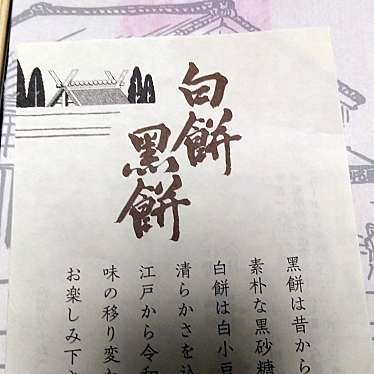 白餅
黑餅
黒餅は昔から
素朴な黒砂糖
白餅は白小豆
清らかさを込
江戸から令和
味の移り変わ
お楽しみ下さ